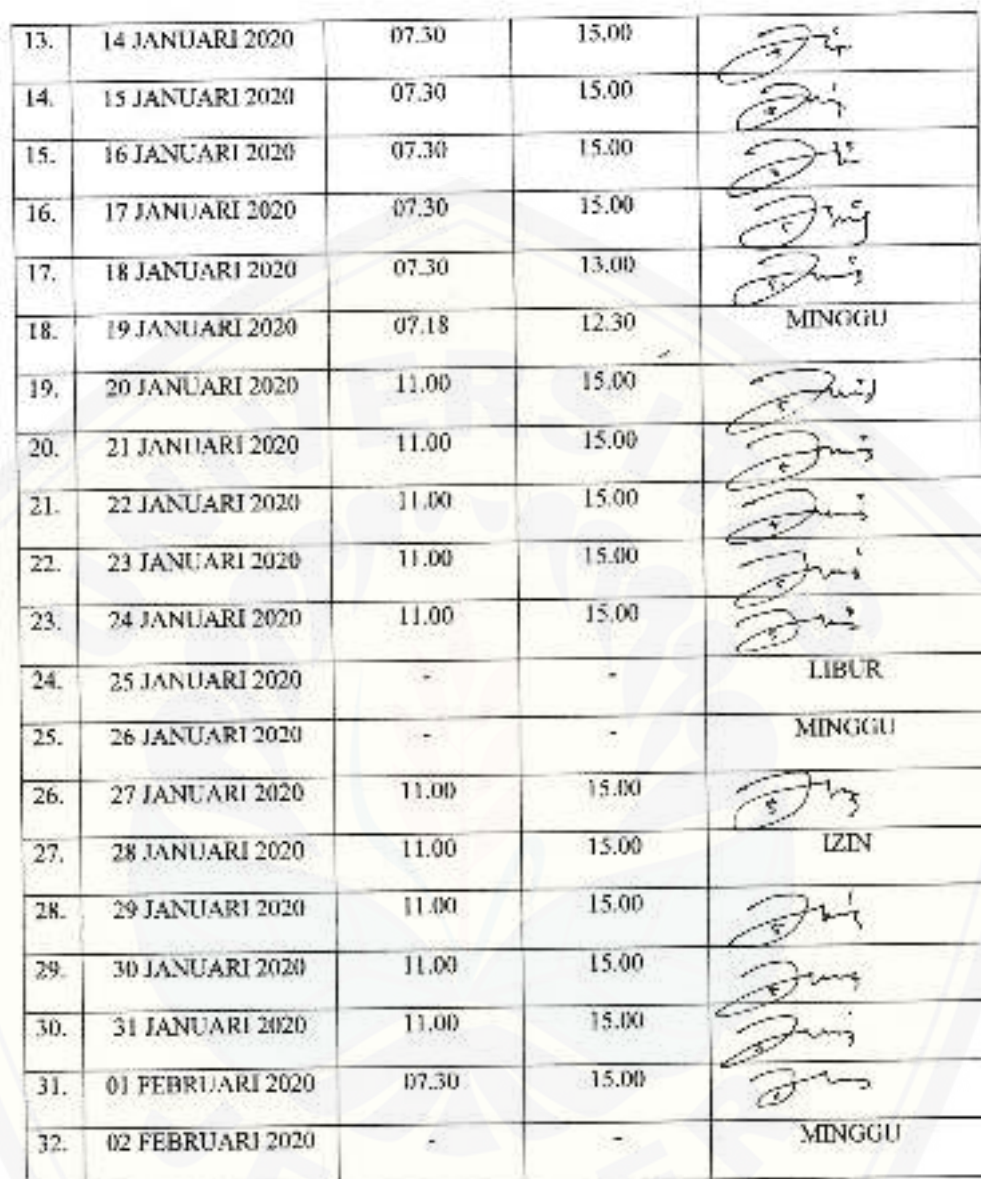 13. 14 JANUARI 2020 07.30 15.00
14. 15 JANUARI 2020 07.30 15.00
15. 16 JANUARI 2020 07.30 15.00
16. 17 JANUARI 2020 07.30 15.00
17. 18 JANUARI 2020 07.30 13.00
18. 19 JANUARI 2020 07.18 12.30 MINGGU
19. 20 JANUARI 2020 11.00 15.00
20. 21 JANUARI 2020 11.00 15.00
21. 22 JANUARI 2020 11.00 15.00
22. 23 JANUARI 2020 11.00 15.00
23. 24 JANUARI 2020 11.00 15.00
24. 25 JANUARI 2020 - - LIBUR
25. 26 JANUARI 2020 - - MINGGU
26. 27 JANUARI 2020 11.00 15.00
27. 28 JANUARI 2020 11.00 15.00 IZIN
28. 29 JANUARI 2020 11.00 15.00
29. 30 JANUARI 2020 11.00 15.00
30. 31 JANUARI 2020 11.00 15.00
31. 01 FEBRUARI 2020 07.30 15.00
32. 02 FEBRUARI 2020 - - MINGGU